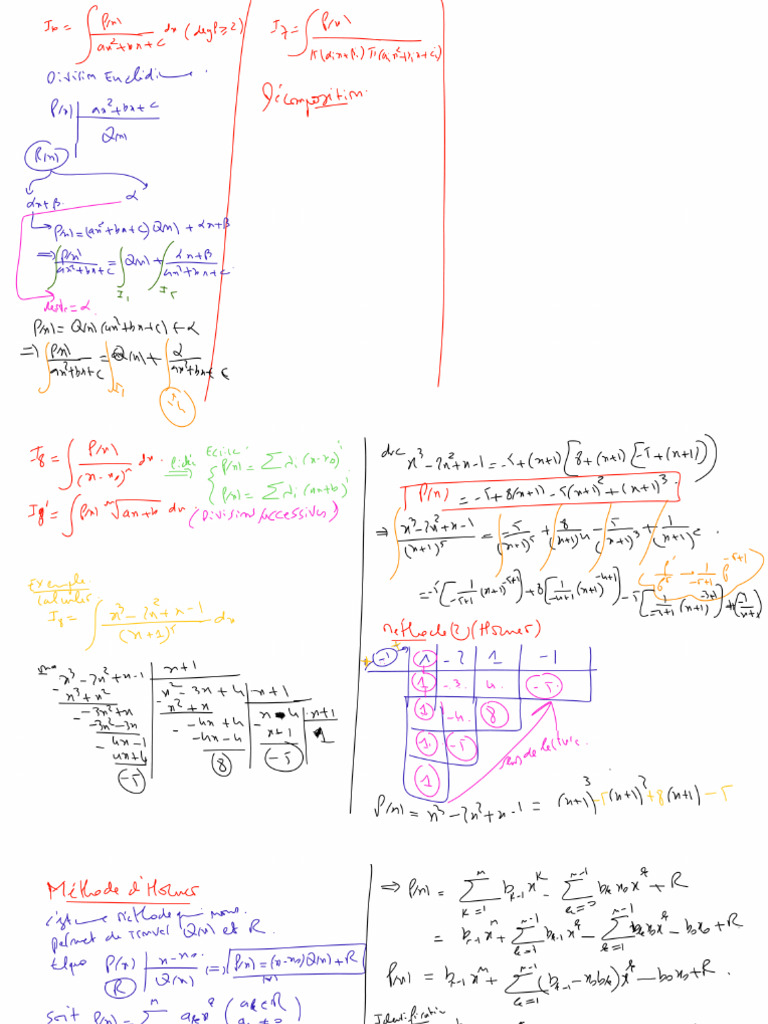 I₆ = ∫ P(x)/(ax²+bx+c) dx (deg P ≥ 2)
Division Euclidi
P(x) | ax²+bx+c
Q(x)
R(x)
αx+β α
P(x) = (ax²+bx+c) Q(x) + αx+β
⇒ ∫ P(x)/(ax²+bx+c) = ∫ Q(x) + ∫ (αx+β)/(ax²+bx+c)
I₁ I₅
reste = α
P(x) = Q(x)(ax²+bx+c) + α
⇒ ∫ P(x)/(ax²+bx+c) = ∫ Q(x) + ∫ α/(ax²+bx+c)
I₁
I₄
I₇ = ∫ P(x)/
Décomposition
I₈ = ∫ P(x)/(x-x₀)ⁿ dx
I₈' = ∫ P(x) ⁿ√(ax+b) dx (Divisions successives)
Idée Ecrire
P(x) = Σ λᵢ (x-x₀)ⁱ
P(x) = Σ λᵢ (ax+b)ⁱ
Exemple
Calculer
I₈ = ∫ (x³-2x²+x-1)/(x+1)⁵ dx
x³-2x²+x-1 | x+1
-x³+x² | x²-3x+4 | x+1
-3x²+x | -x²+x | x-4 | x+1
-3x²-3x | -4x+4 | -x+1 | 1
4x-1 | -4x-4 | -5
4x+4 | 8
-5
donc x³-2x²+x-1 = -5+(x+1)[8+(x+1)[-5+(x+1)]]
P(x) = -5+8(x+1)-5(x+1)²+(x+1)³
⇒ ∫ (x³-2x²+x-1)/(x+1)⁵ = ∫ -5/(x+1)⁵ + ∫ 8/(x+1)⁴ - ∫ 5/(x+1)³ + ∫ 1/(x+1)²
= -5[1/(-5+1) (x+1)^(-5+1)] + 8[1/(-4+1) (x+1)^(-4+1)] - 5[1/(-3+1) (x+1)^(-3+1)] + (-1/(x+1))
Méthode (2) (Horner)
-1 | 1 | -2 | 1 | -1
1 | -3 | 4 | -5
1 | -4 | 8
1 | -5
1
sens de lecture
P(x) = x³-2x²+x-1 = (x+1)³-5(x+1)²+8(x+1)-5
Méthode d'Horner
c'est une méthode qui nous
permet de trouver Q(x) et R.
P(x) | x-x₀ ⇔ P(x) = (x-x₀)Q(x)+R
R | Q(x)
Soit P(x) = Σ aₖxᵏ (aₖ∈ℝ
⇒ P(x) = Σ bₖ₋₁xᵏ - Σ bₖx₀xᵏ + R
= bₙ₋₁xⁿ + Σ bₖ₋₁xᵏ - Σ bₖx₀xᵏ - b₀x₀ + R
P(x) = bₙ₋₁xⁿ + Σ (bₖ₋₁-x₀bₖ)xᵏ - b₀x₀ + R.
Identification